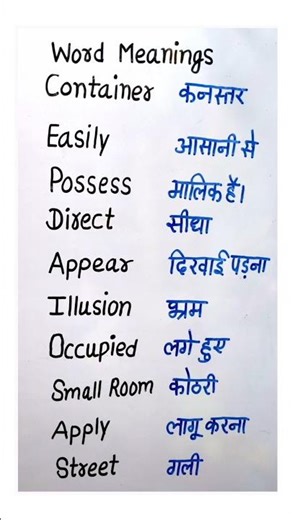 Word Meanings
Container कनस्तर
Easily आसानी से
Possess मालिक हैं।
Direct सीधा
Appear दिखाई पड़ना
Illusion भ्रम
Occupied लगे हुए
Small Room कोठरी
Apply लागू करना
Street गली